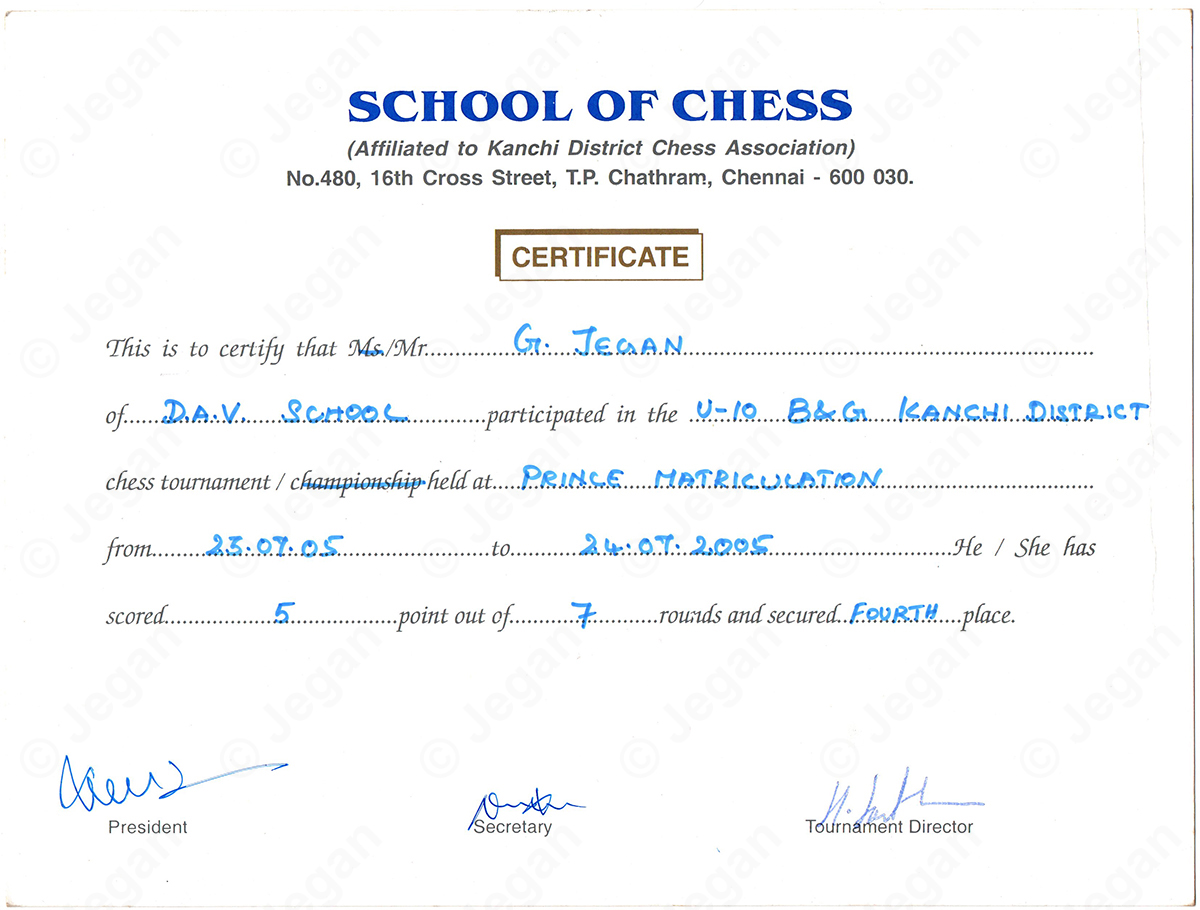 SCHOOL OF CHESS
(Affiliated to Kanchi District Chess Association)
No.480, 16th Cross Street, T.P. Chathram, Chennai - 600 030.
CERTIFICATE
This is to certify that Ms./Mr. G. JEGAN
of D.A.V. SCHOOL participated in the U-10 B&G KANCHI DISTRICT
chess tournament / championship held at PRINCE MATRICULATION
from 23.07.05 to 24.07.2005 He / She has
scored 5 point out of 7 rounds and secured FOURTH place.
President Secretary Tournament Director
© Jegan